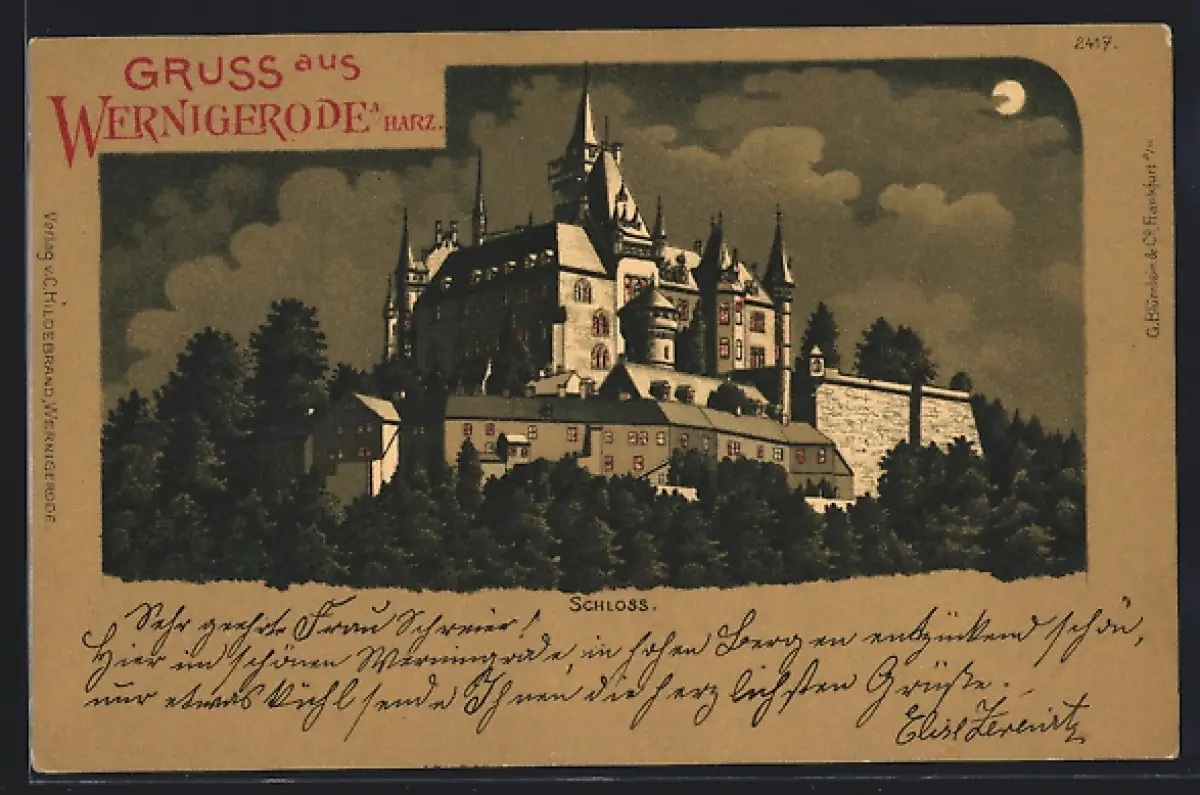 2417.
GRUSS aus
WERNIGERODE A/HARZ.
Verlag v. C. HILDEBRAND, WERNIGERODE.
G. Blümlein & Co. Frankfurt a/M
SCHLOSS.
Sehr geehrte Frau Schreier!
Hier im schönen Werningrode, in hohen Bergen entzückend schön,
nur etwas kühl sende Ihnen die herzlichsten Grüße.
Elise